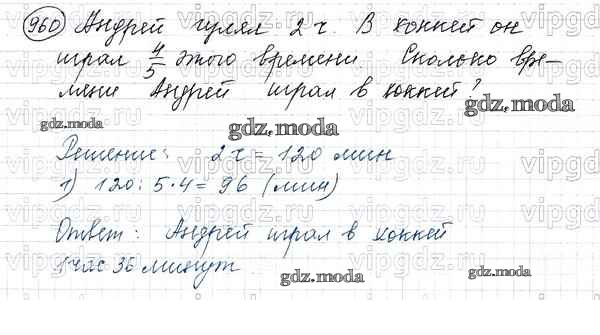 960 Андрей гулял 2 ч. В хоккей он
играл 4/5 этого времени Сколько вре-
мени Андрей играл в хоккей?
gdz.moda
gdz.moda
gdz.moda
Решение: 2 ч = 120 мин
1) 120 : 5 · 4 = 96 (мин)
Ответ: Андрей играл в хоккей
1 час 36 минут.
gdz.moda
gdz.moda